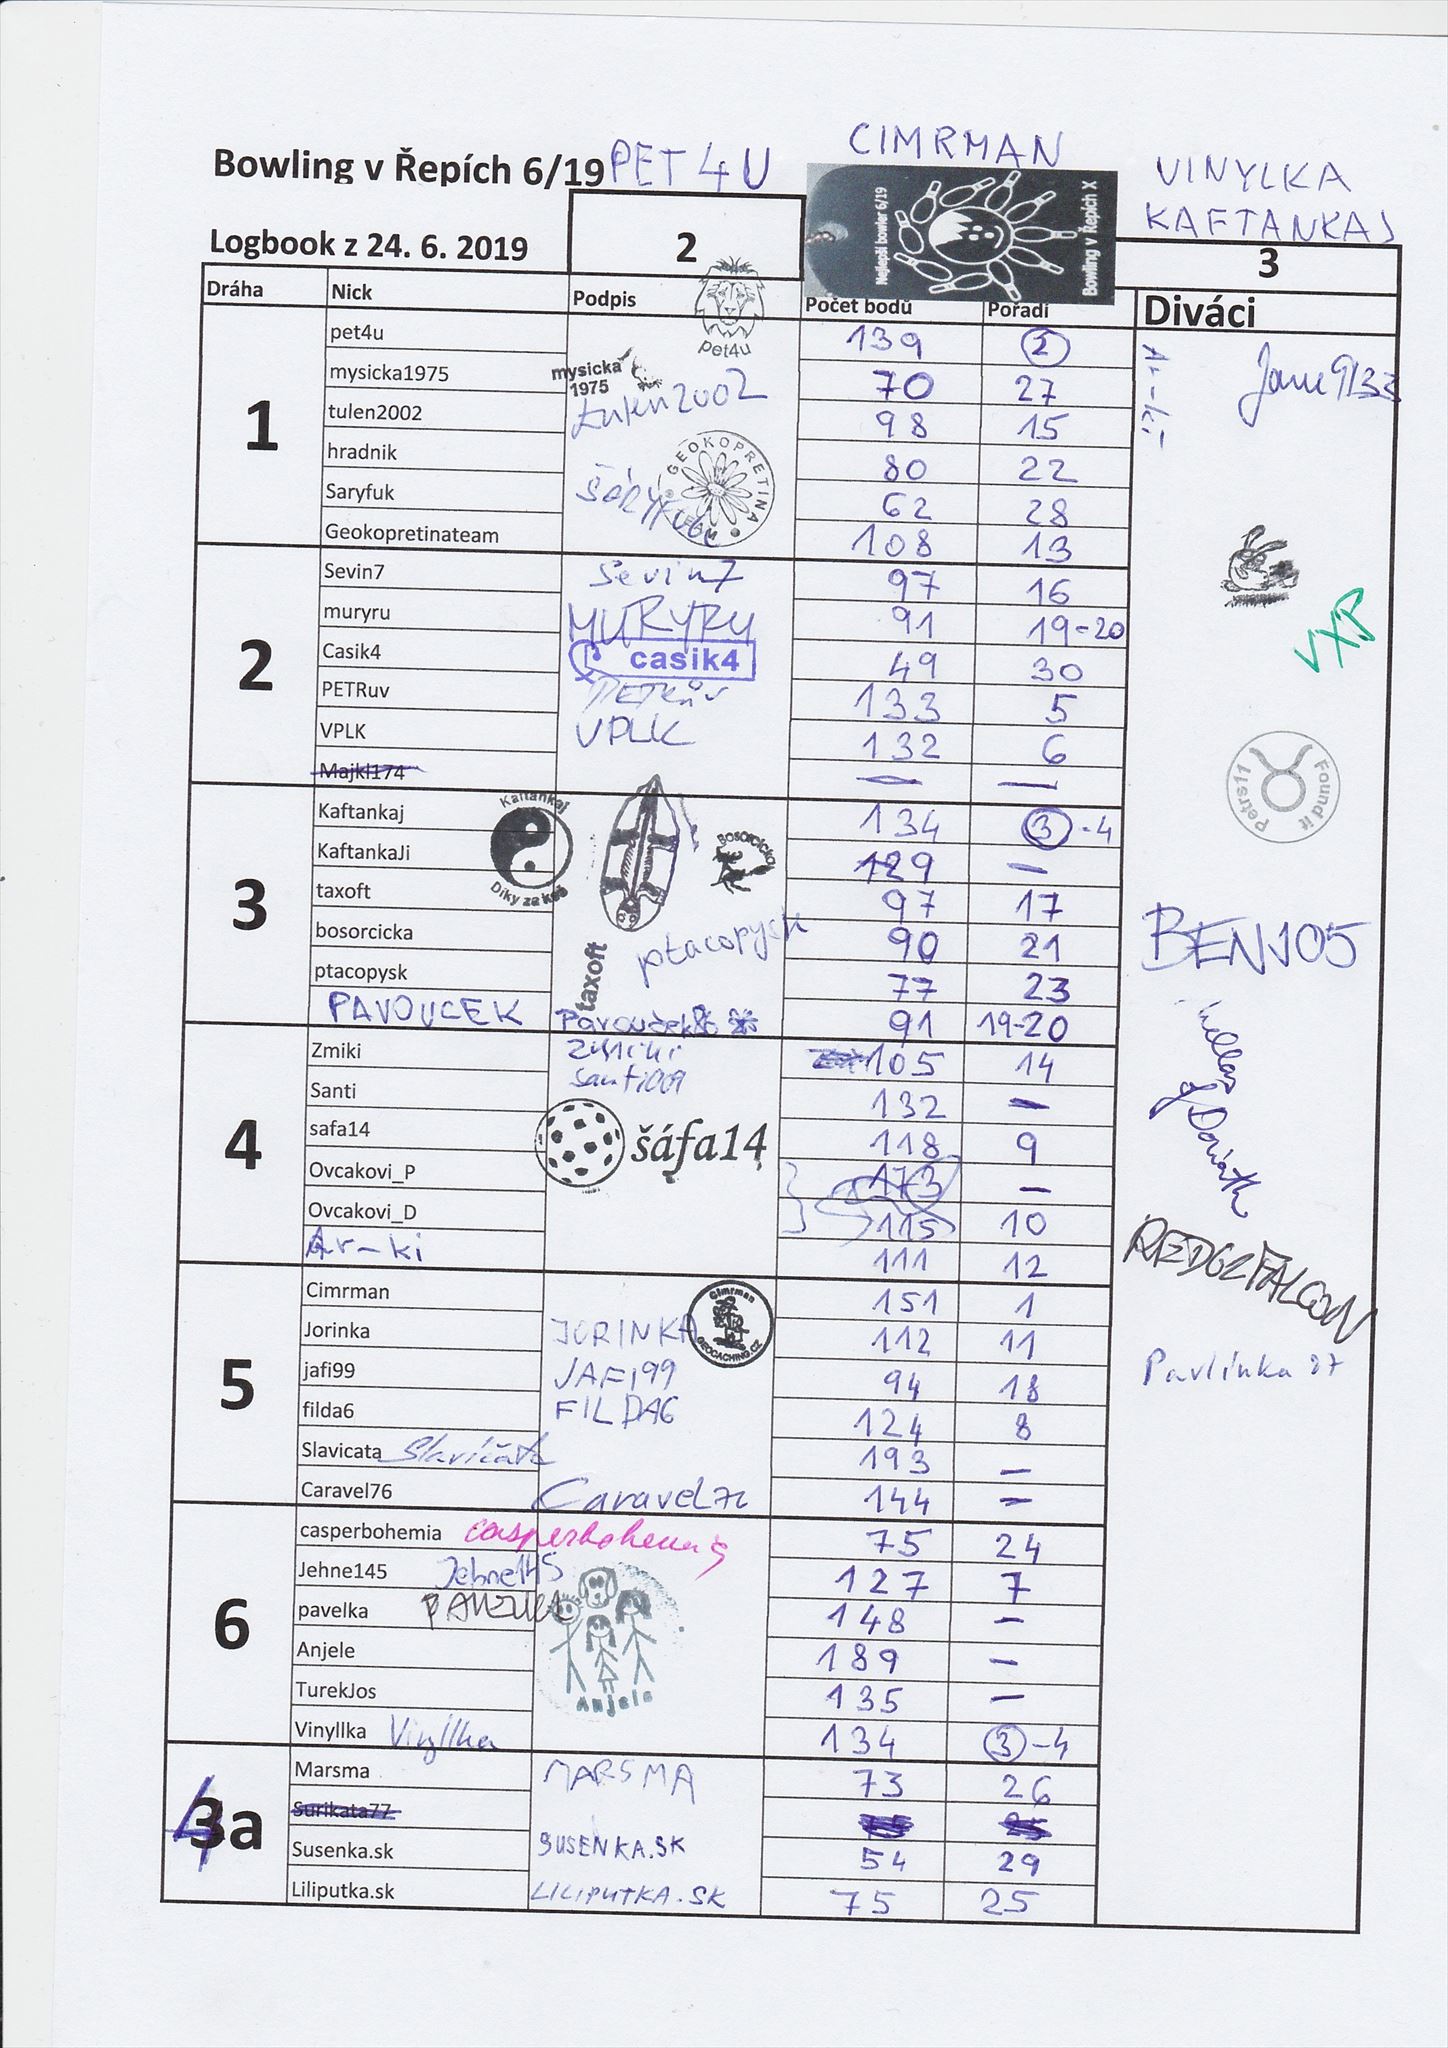 CIMRMAN
Bowling v Řepích 6/19 PET4U
VINYLKA
KAFTANKAJ
Nejlepší bowler 6/19
Bowling v Řepích X
Logbook z 24. 6. 2019
2
3
Dráha Nick Podpis Počet bodů Pořadí Diváci
1
pet4u pet4u 139 2
mysicka1975 mysicka 1975 70 27
tulen2002 tulen2002 98 15
hradnik 80 22
Saryfuk 62 28
Geokopretinateam GEOKOPRETINA TEAM 108 13
2
Sevin7 Sevin7 97 16
muryru MURYRU 91 19-20
Casik4 casik4 49 30
PETRuv PETRův 133 5
VPLK VPLK 132 6
Majkl174 — —
3
Kaftankaj Kaftankaj Díky za keš 134 3-4
KaftankaJi 129 —
taxoft taxoft 97 17
bosorcicka Bosorcicka 90 21
ptacopysk ptacopysk 77 23
PAVOUCEK Pavouček 91 19-20
4
Zmiki Zmiki 105 14
Santi santi009 132 —
safa14 šáfa14 118 9
Ovcakovi_P 173 —
Ovcakovi_D 115 10
Ar-ki 111 12
5
Cimrman Cimrman GEOCACHING.CZ 151 1
Jorinka JORINKA 112 11
jafi99 JAFi99 94 18
filda6 FILDA6 124 8
Slavicata Slavičata 193 —
Caravel76 Caravel76 144 —
6
casperbohemia casperbohemia 75 24
Jehne145 Jehne145 127 7
pavelka 148 —
Anjele Anjele 189 —
TurekJos 135 —
Vinyllka Vinyllka 134 3-4
4
3a
Marsma MARSMA 73 26
Surikata77
Susenka.sk SUSENKA.SK 54 29
Liliputka.sk LILIPUTKA.SK 75 25
Ar-ki
VXP
Petrs11 Found it
BEN105
of Doriath
Pavlínka